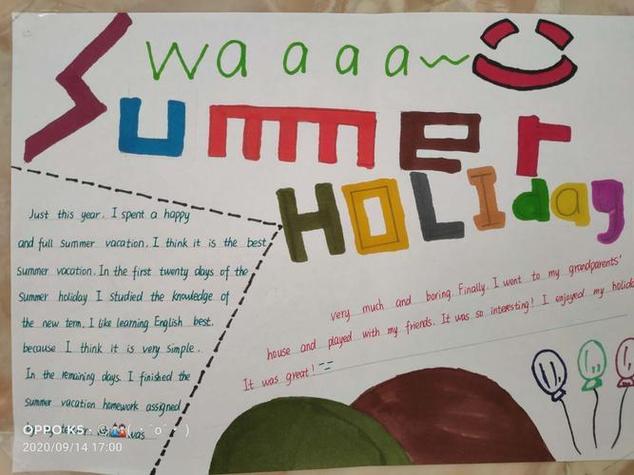 waaaaw
Summer
HOLiday
Just this year. I spent a happy
and full summer vacation. I think it is the best
summer vacation. In the first twenty days of the
summer holiday I studied the knowledge of
the new term. I like learning English best.
because I think it is very simple.
In the remaining days. I finished the
summer vacation homework assigned
was
very much and boring. Finally. I went to my grandparents'
house and played with my friends. It was so interesting! I enjoyed my holiday
It was great!
OPPO K5
2020/09/14 17:00